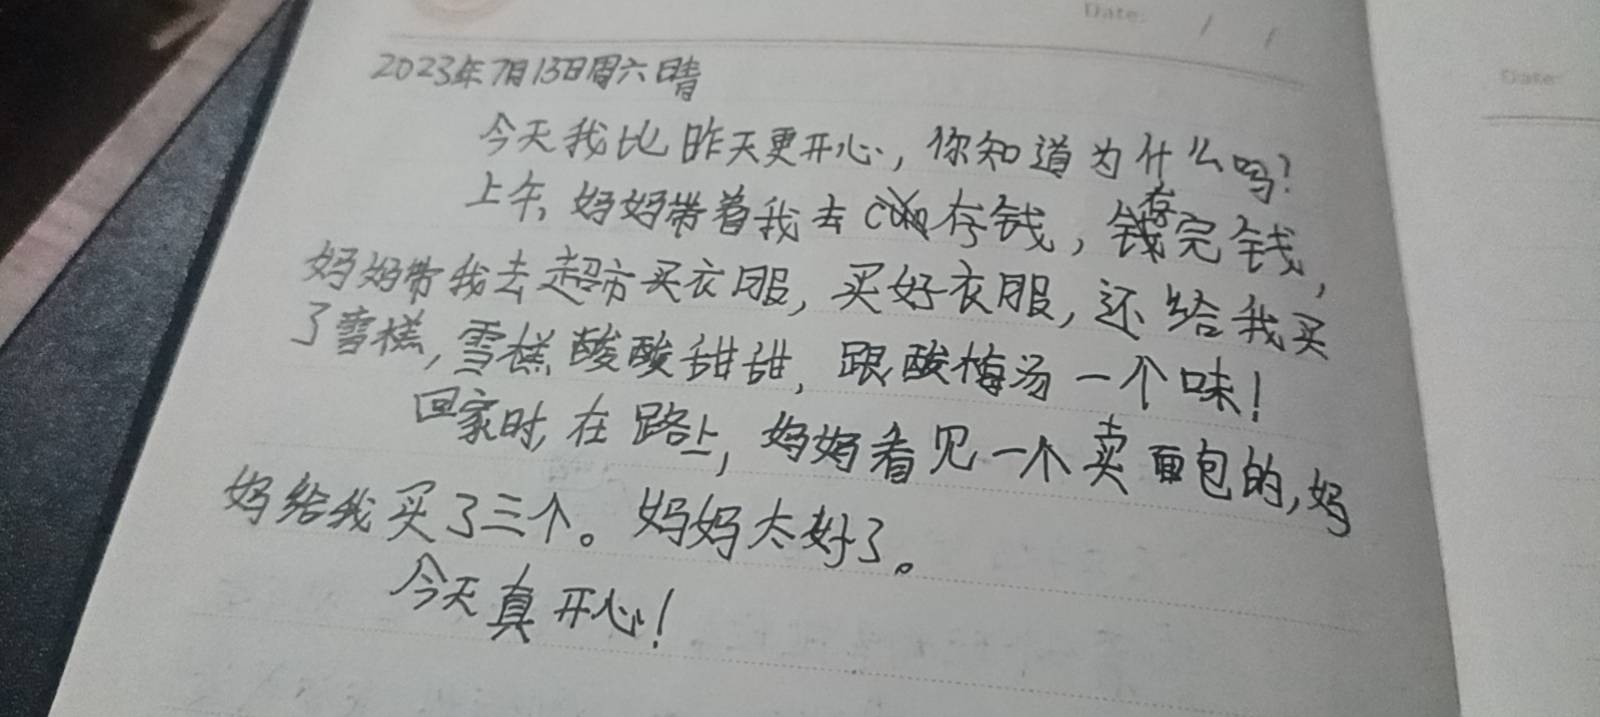 Date: / /
Date:
2023年7月15日周六晴
今天我比昨天更开心，你知道为什么吗？
上午，妈妈带着我去存钱，存完钱，
妈妈带我去超市买衣服，买好衣服，还给我买
了雪糕，雪糕酸酸甜甜，跟酸梅汤一个味！
回家时，在路上，妈妈看见一个卖面包的，妈
妈给我买了三个。妈妈太好了。
今天真开心！